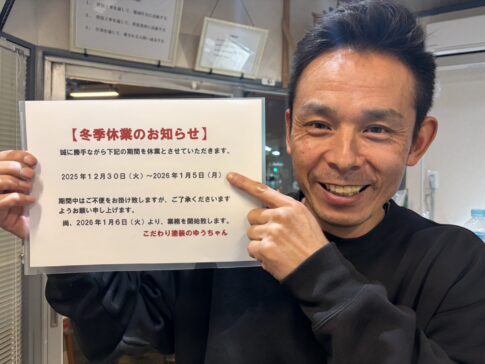 【冬季休業のお知らせ】
誠に勝手ながら下記の期間を休業とさせていただきます。
2025年12月30日（火）～2026年1月5日（月）
期間中はご不便をお掛け致しますが、ご了承くださいます
ようお願い申し上げます。
尚、2026年1月6日（火）より、業務を開始致します。
こだわり塗装のゆうちゃん